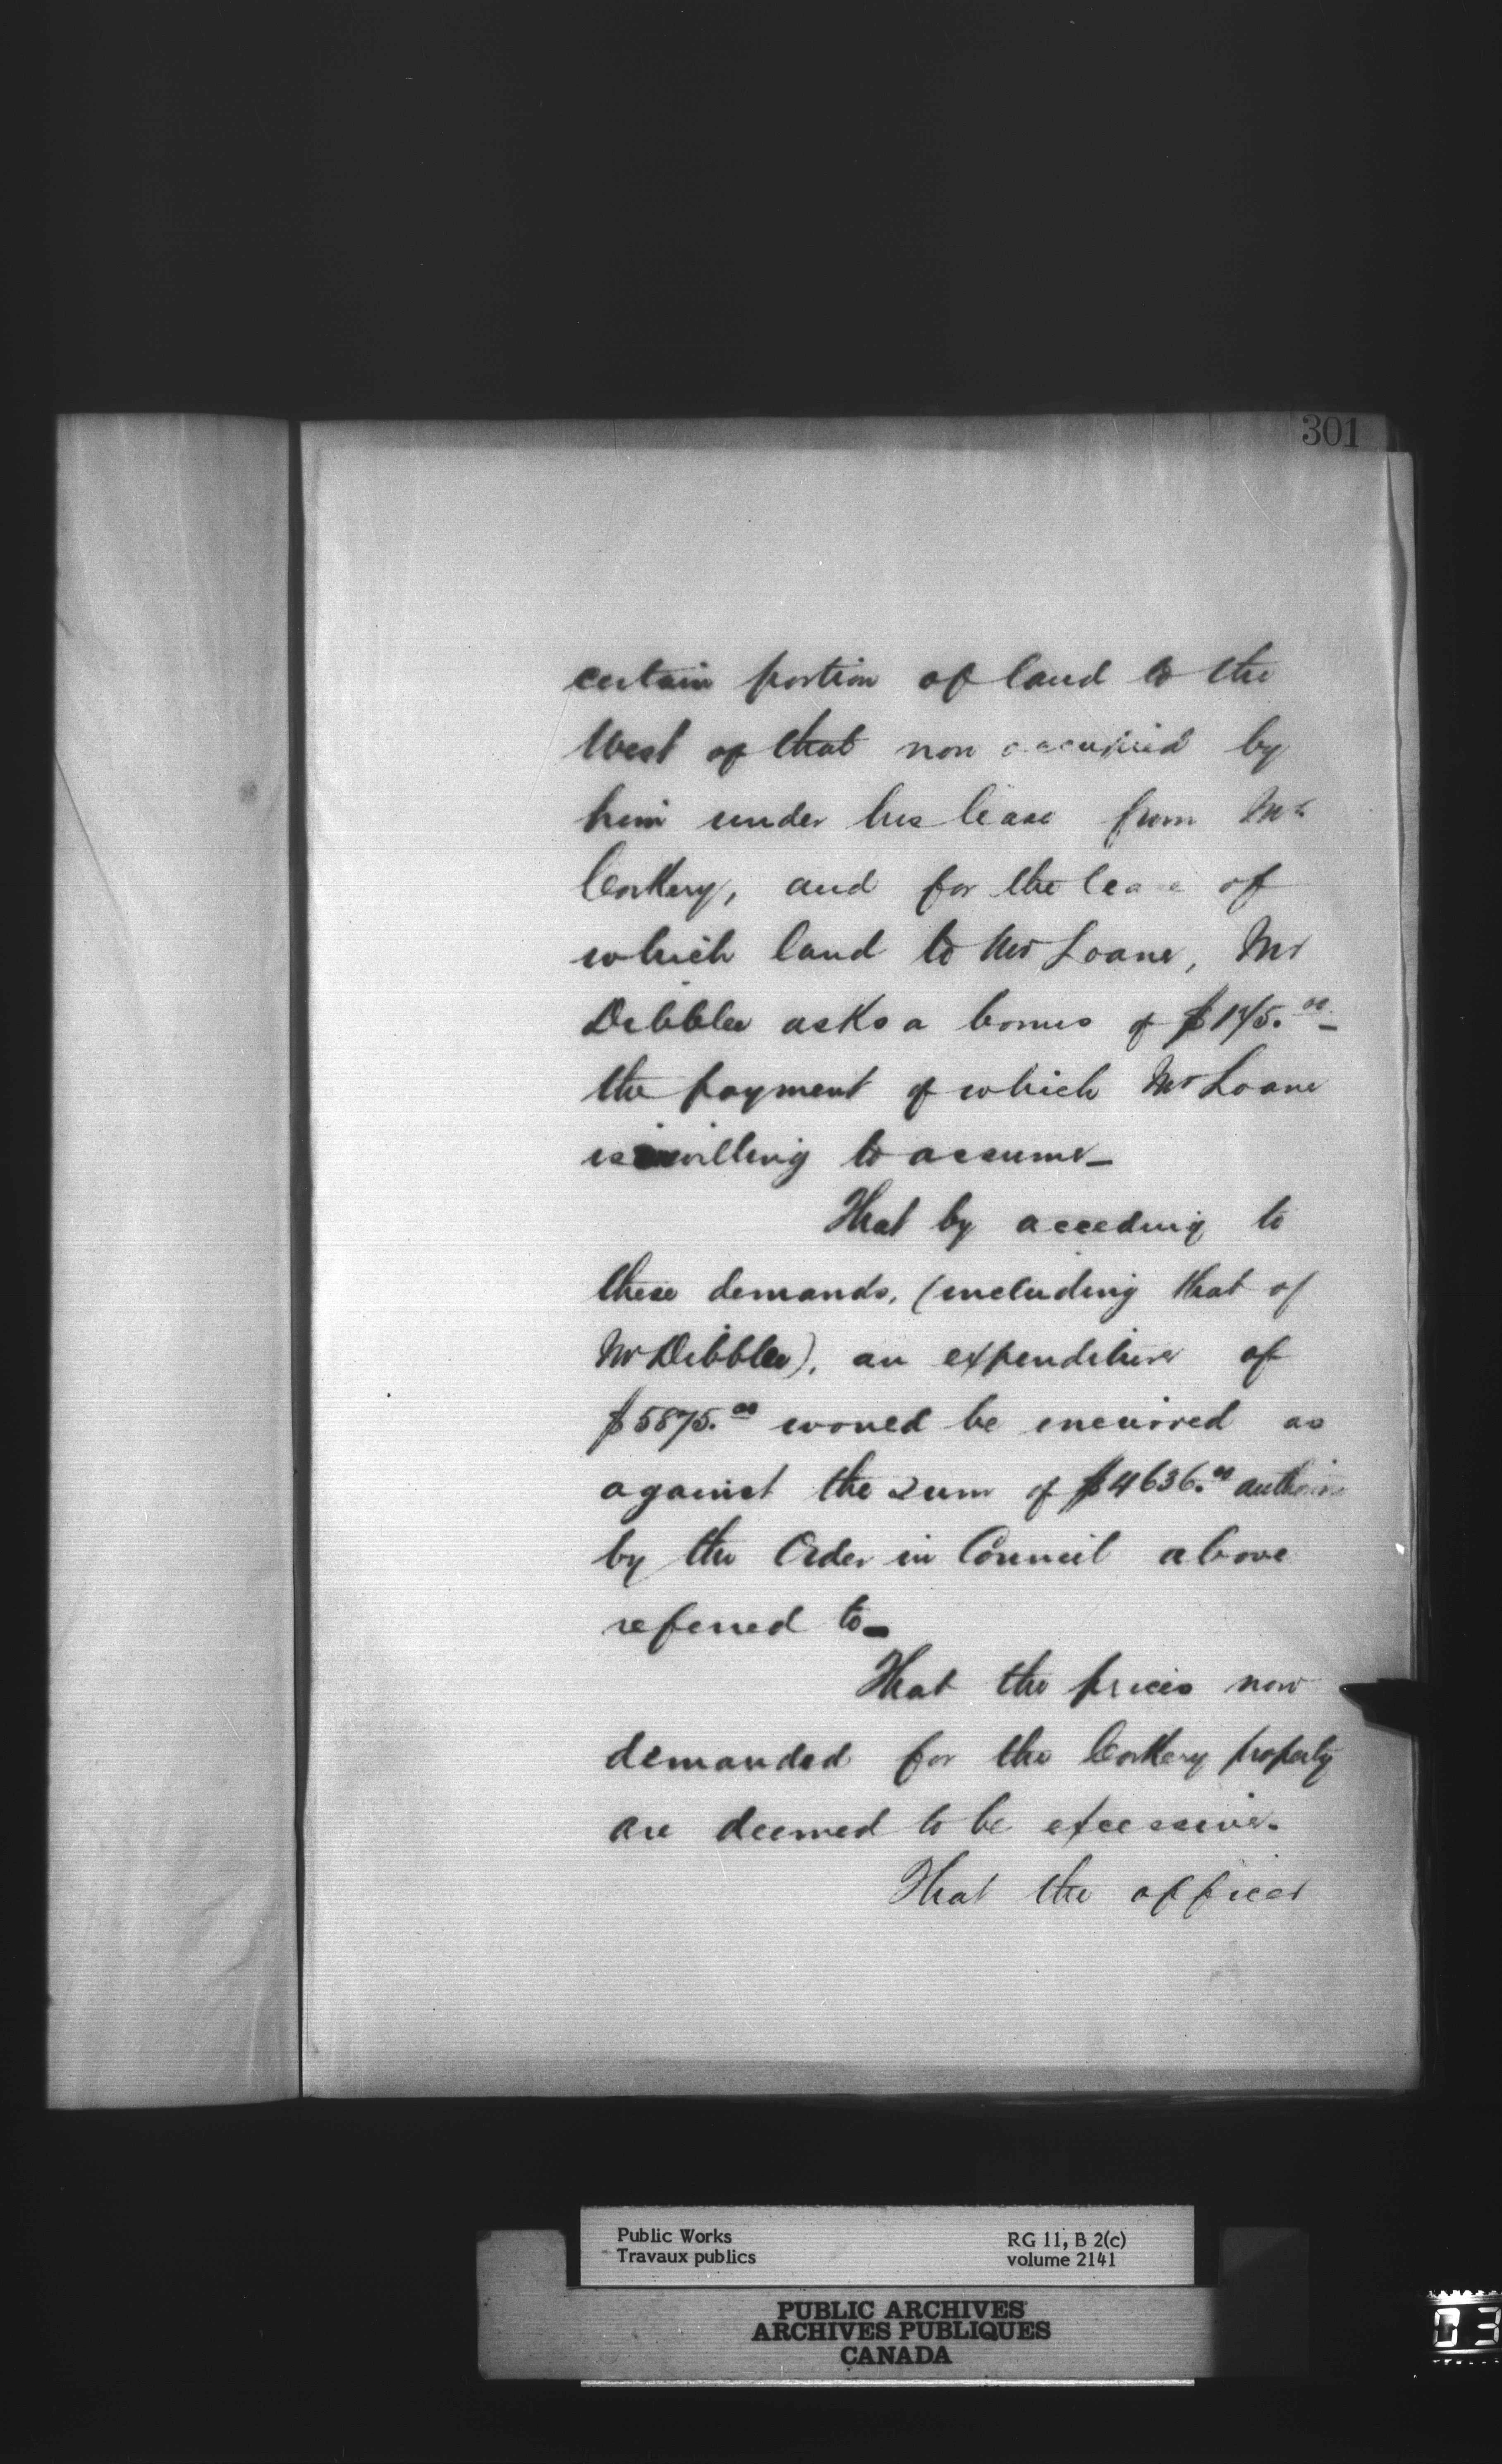 301
certain portion of land to the
West of that now occupied by
him under his lease from Mr
Corkery, and for the lease of
which land to Mr Loane, Mr
Dibblee asks a bonus of
the payment of which Mr Loane
is willing to assume_
That by acceding to
these demands, (including that of
Mr Dibblee), an expenditure of
$5875.00 would be incurred as
against the sum of $4636.00
by the Order in Council above
referred to_
That the prices now
demanded for the Corkery property
are deemed to be excessive.
That the officer
Public Works
Travaux publics
RG 11, B 2(c)
volume 2141
PUBLIC ARCHIVES
ARCHIVES PUBLIQUES
CANADA
03